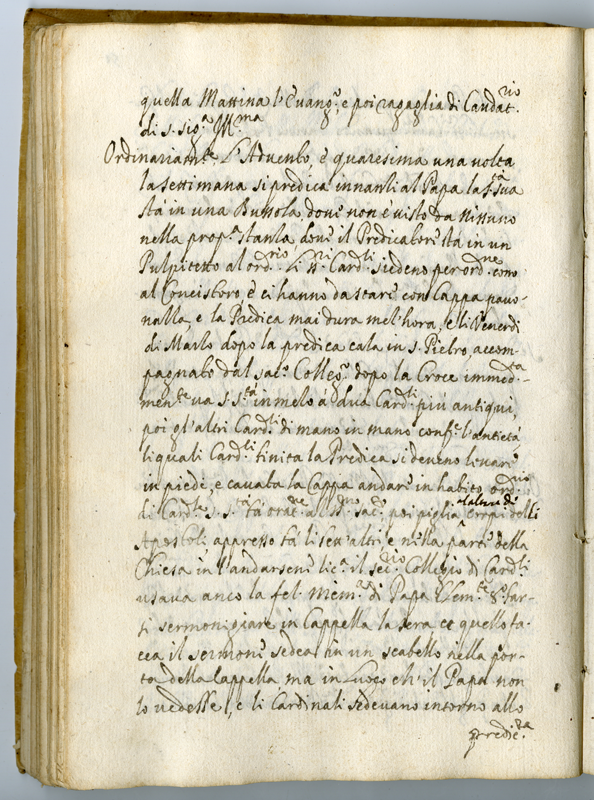 quella Mattina l'Euang.º, e poi ragaglia di Caudat.rio
di S. Sig.ª Ill.ma
Ordinariam.te L'Aduento, è quaresima una volta
la settimana si predica innanti al Papa la S.tà sua
stà in una Bussola, doue non è uisto da Nissuno
nella prop.ª stanza, doue il Predicatore stà in un
Pulpitetto al ord.rio. Li SS.ri Card.li siedeno per ord.ne como
al Concistoro, è ci hanno da stare con Cappa pauo-
nazza, e la Predica mai dura mez'hora, e li Venerdì
di Marzo dopo la predica cala in S. Pietro, accom-
pagnato dal sac.º Colleg.º dopo la Croce immed.ta
men.te ua S. S.tà in mezo à dua Card.li più antiqui,
poi gl'altri Card.li di mano in mano conf.e l'antictà
li quali Card.li finita la Predica si deueno liuare
in piede, e cauata la Cappa andare in habito ord.rio
di Card.le S. S.tà fà orat.ne al SS.mo sac.º poi piglia la [...] di corpi delli
Apostoli appresso fà li sett'altri e nella parte della
Chiesa in l'andarsene lic.ª il sac.º Collegio di Card.li
usaua anco la fel. mem.ª di Papa Clem.te 8.º far-
si sermonigiare in Cappella la sera et quello fa-
cea il sermone sedea in un scabello nella por-
ta della Cappella, ma in Luogo ch'il Papa non
lo uedesse, e li Cardinali sedeuano intorno allo
predic.ta